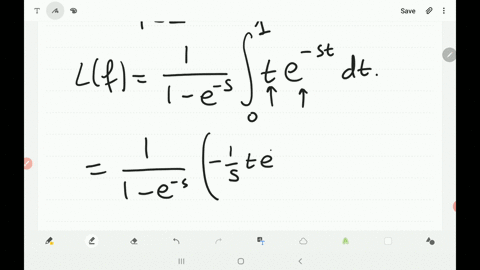 Save
L(f) = 1/(1-e^{-s}) ∫_0^1 t e^{-st} dt.
= 1/(1-e^{-s}) (-1/s t e